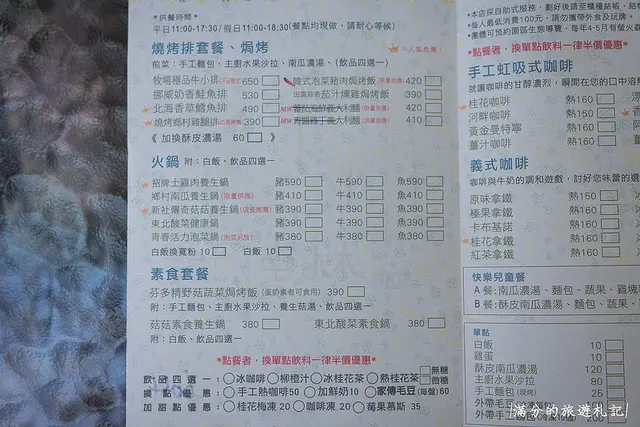 *供餐時間*
平日11:00-17:30/假日11:00-18:30(餐點均現做，請耐心等候)
燒烤排套餐、焗烤
前菜：手工麵包、主廚水果沙拉、南瓜濃湯、(飲品四選一)
牧場極品牛小排 650
韓式泡菜豬肉焗烤飯 420
挪威奶香鮭魚排 530
茄汁燻雞焗烤飯 390
北海香草鱈魚排 490
義大利麵 420
燒烤鄉村雞腿排 390
義大利麵 410
《 加換酥皮濃湯 60 》
火鍋 附：白飯、飲品四選一
招牌土雞肉養生鍋 豬590 牛590 魚590
鄉村南瓜養生鍋(限量供應) 豬410 牛410 魚410
新社傳奇菇菇養生鍋(店長推薦) 豬390 牛390 魚390
東北酸菜健康鍋 豬380 牛380 魚380
青春活力泡菜鍋 豬380 牛380 魚380
白飯換寬粉 10 白飯 10
素食套餐
芬多精野菇蔬菜焗烤飯(蛋奶素者可食用) 390
附：手工麵包、主廚水果沙拉、養生菇湯、飲品四選一
菇菇素食養生鍋 380 東北酸菜素食鍋 380
附：白飯、飲品四選一
*點餐者，換單點飲料一律半價優惠*
飲品四選一：冰咖啡 柳橙汁 冰桂花茶 熱桂花茶 無糖 微糖
換點優惠：手工熱咖啡50 加鮮奶10 家傳毛豆(每盤)60
加甜點優惠：桂花梅凍20 咖啡凍20 莓果慕斯 35
*本店採自助式服務，劃好後請至櫃檯結帳，
*每人最低消費100元，請勿攜帶外食及玩牌。
*團體可預約園區生態導覽，每年4-5月有螢火蟲
*點餐者，換單點飲料一律半價優惠*
手工虹吸式咖啡
就讓咖啡的甘醇濃烈，瞬間在您的口中溶
桂花咖啡 熱160
河畔咖啡 熱150
黃金曼特寧 熱160
薑汁咖啡 熱160
義式咖啡
咖啡與牛奶的調和遊戲，討好您味蕾的選
原味拿鐵 熱150
榛果拿鐵 熱160
卡布基諾 熱160
桂花拿鐵 熱160
紅茶拿鐵 熱160
快樂兒童餐
A餐:南瓜濃湯、麵包、蔬果、雞塊
B餐:酥皮南瓜濃湯、麵包、蔬果、
單點
白飯 10
雞蛋 10
酥皮南瓜濃湯 120
主廚水果沙拉 80
手工麵包(現烤) 25
外帶毛豆
外帶手工 200
滿分的旅遊札記